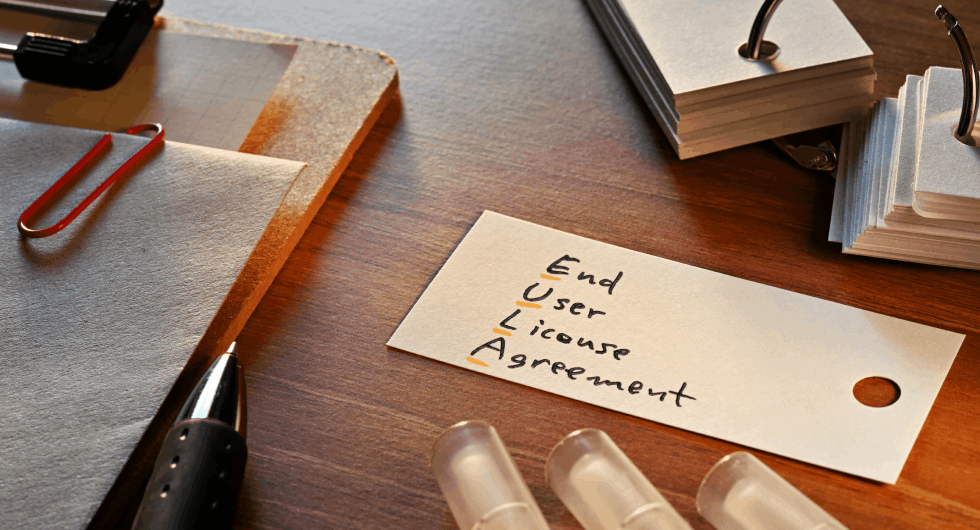 End
User
Licouse
Agreement